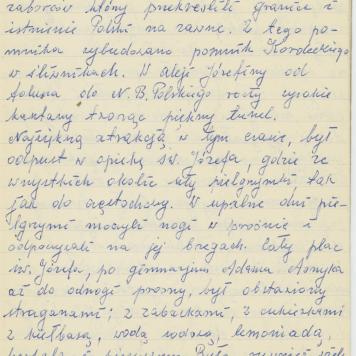 zaborców który przekreślili granice i
istnienie Polski na zawsze. Z tego po-
mnika wybudowano pomnik Kordeckiego
w Śliwnikach. W aleji Józefiny od
do N. B. Polskiego rosły wysokie
kasztany tworząc piękny tunel.
Największą atrakcją w tym czasie, był
odpust w opiekę św. Józefa, gdzie ze
wszystkich okolic szły pielgrzymki, tak
jak do Częstochowy. W upalne dni pie-
lgrzymi moczyli nogi w prośnie i
odpoczywali na jej brzegach. Cały plac
św. Józefa, po gimnazjum Adama Asnyka
aż do odnogi prosny, był obstawiony
straganami; z zabawkami, z cukierkami
z kiełbasą, wodą sodową, lemoniadą,